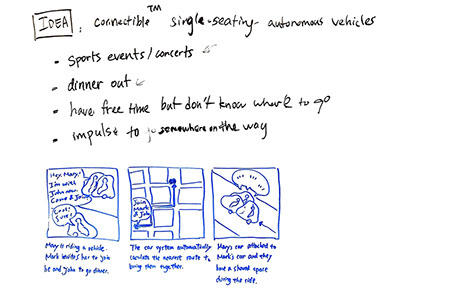 IDEA: connectible™ single-seating autonomous vehicles
• sports events/concerts
• dinner out
• have free time but don't know where to go
• impulse to go somewhere on the way
Hey, Mary!
I'm with
John now.
Come & Join!
Cool!
Sure!
Join
Mark
& John
Mary is riding a vehicle.
Mark invites her to join
he and John to go dinner.
The car system automatically
calculate the nearest route to
bring them together.
Mary's car attached to
Mark's car and they
have a shared space
during the ride.